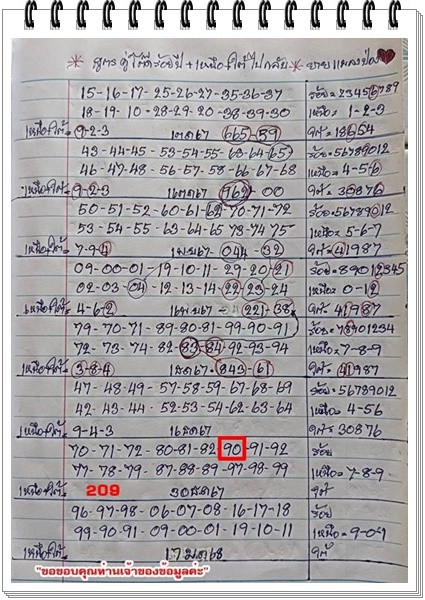 สูตร คู่โต๊ดร้อยปี + เหนือ/ใต้ ไปกลับ
15-16-17-25-26-27-35-36-37 ร้อย=23456789
18-19-10-28-29-20-38-39-30 เหนือ=1-2-3
เหนือ/ใต้=9-2-3 665-59 ใต้=18654
43-44-45-53-54-55-63-64-65 ร้อย=56789012
46-47-48-56-57-58-66-67-68 เหนือ=4-5-6
เหนือ/ใต้=9-2-3 962-00 ใต้=30876
50-51-52-60-61-62-70-71-72 ร้อย=56789012
53-54-55-63-64-65-73-74-75 เหนือ=5-6-7
เหนือ/ใต้=7-9-4 044-32 ใต้=41987
09-00-01-19-10-11-29-20-21 ร้อย=89012345
02-03-04-12-13-14-22-23-24 เหนือ=0-12
เหนือ/ใต้=4-6-2 221-38 ใต้=41987
79-70-71-89-80-81-99-90-91 ร้อย=78901234
72-73-74-82-83-84-92-93-94 เหนือ=7-8-9
เหนือ/ใต้=3-8-4 1ธค67 843-61 ใต้=41987
47-48-49-57-58-59-67-68-69 ร้อย=56789012
42-43-44-52-53-54-62-63-64 เหนือ=4-56
เหนือ/ใต้=9-4-3 16ธค67 ใต้=30876
70-71-72-80-81-82-90-91-92 ร้อย
77-78-79-87-88-89-97-98-99 เหนือ=7-8-9
เหนือ/ใต้ 209 30ธค67 ใต้
96-97-98-06-07-08-16-17-18 ร้อย
99-90-91-09-00-01-19-10-11 เหนือ=9-0-1
เหนือ/ใต้ 17มค68 ใต้
"ขอขอบคุณท่านเจ้าของข้อมูลค่ะ"